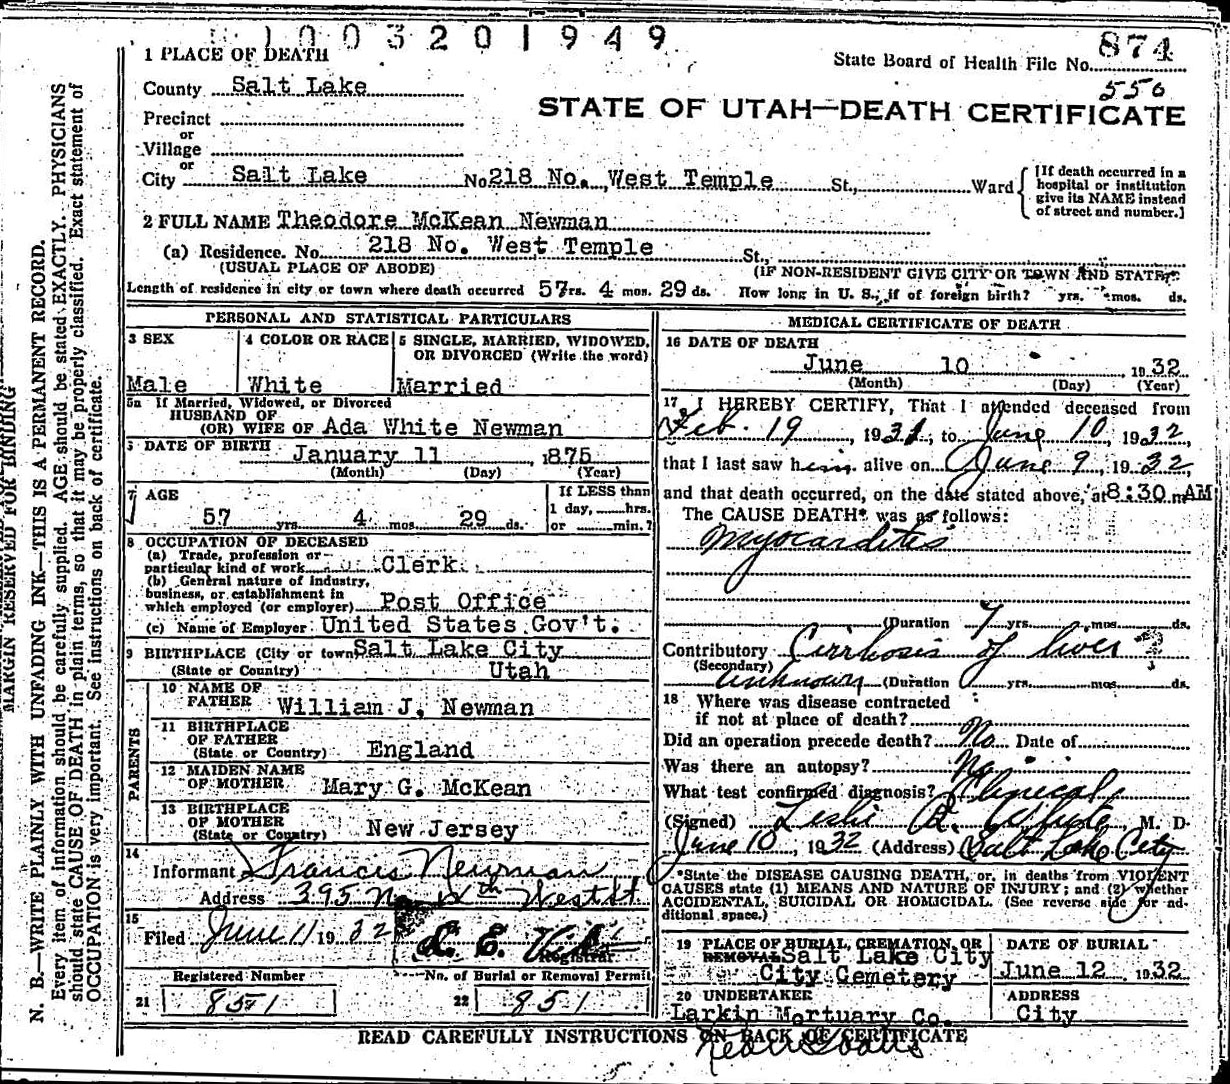 1003201949
874
State Board of Health File No.
556
1 PLACE OF DEATH
County Salt Lake
STATE OF UTAH—DEATH CERTIFICATE
Precinct
or
Village
or
City Salt Lake No 218 No. West Temple St., Ward
[If death occurred in a hospital or institution give its NAME instead of street and number.]
2 FULL NAME Theodore McKean Newman
(a) Residence. No. 218 No. West Temple St.,
(USUAL PLACE OF ABODE) (IF NON-RESIDENT GIVE CITY OR TOWN AND STATE)
Length of residence in city or town where death occurred 57 rs. 4 mos. 29 ds. How long in U. S., if of foreign birth? yrs. mos. ds.
PERSONAL AND STATISTICAL PARTICULARS
3 SEX Male
4 COLOR OR RACE White
5 SINGLE, MARRIED, WIDOWED, OR DIVORCED (Write the word) Married
5a If Married, Widowed, or Divorced
HUSBAND OF
(OR) WIFE OF Ada White Newman
6 DATE OF BIRTH January 11 1875
(Month) (Day) (Year)
7 AGE
57 yrs 4 mos 29 ds.
If LESS than
1 day, hrs.
or min.?
8 OCCUPATION OF DECEASED
(a) Trade, profession or
particular kind of work Clerk
(b) General nature of Industry,
business, or establishment in
which employed (or employer) Post Office
(c) Name of Employer United States Gov't.
9 BIRTHPLACE (City or town Salt Lake City
(State or Country) Utah
PARENTS
10 NAME OF
FATHER William J. Newman
11 BIRTHPLACE
OF FATHER
(State or Country) England
12 MAIDEN NAME
OF MOTHER Mary G. McKean
13 BIRTHPLACE
OF MOTHER
(State or Country) New Jersey
14
Informant Francis Newman
Address 395 No 4th West St
15
Filed June 11 1932 L. E.
Registrar
Registered Number No. of Burial or Removal Permit
21 851 22 851
MEDICAL CERTIFICATE OF DEATH
16 DATE OF DEATH
June 10 1932
(Month) (Day) (Year)
17 I HEREBY CERTIFY, That I attended deceased from
Feb. 19, 1931, to June 10, 1932,
that I last saw him alive on June 9, 1932,
and that death occurred, on the date stated above, at 8:30 m AM
The CAUSE DEATH* was as follows:
Myocarditis
(Duration 7 yrs. mos. ds.
Contributory Cirrhosis of liver ?
(Secondary)
unknown (Duration yrs. mos. ds.
18 Where was disease contracted
if not at place of death?
Did an operation precede death? No Date of
Was there an autopsy? No
What test confirmed diagnosis? Clinical
(Signed) Leslie R. White, M. D.
June 10, 1932 (Address) Salt Lake City
*State the DISEASE CAUSING DEATH, or, in deaths from VIOLENT
CAUSES state (1) MEANS AND NATURE OF INJURY; and (2) whether
ACCIDENTAL, SUICIDAL OR HOMICIDAL. (See reverse side for additional space.)
19 PLACE OF BURIAL, CREMATION, OR
REMOVAL Salt Lake City
City Cemetery
DATE OF BURIAL
June 12 1932
20 UNDERTAKER
Larkin Mortuary Co.
ADDRESS
City
READ CAREFULLY INSTRUCTIONS ON BACK OF CERTIFICATE
MARGIN RESERVED FOR BINDING
N. B.—WRITE PLAINLY WITH UNFADING INK—THIS IS A PERMANENT RECORD.
Every item of information should be carefully supplied. AGE should be stated EXACTLY. PHYSICIANS
should state CAUSE OF DEATH in plain terms, so that it may be properly classified. Exact statement of
OCCUPATION is very important. See instructions on back of certificate.